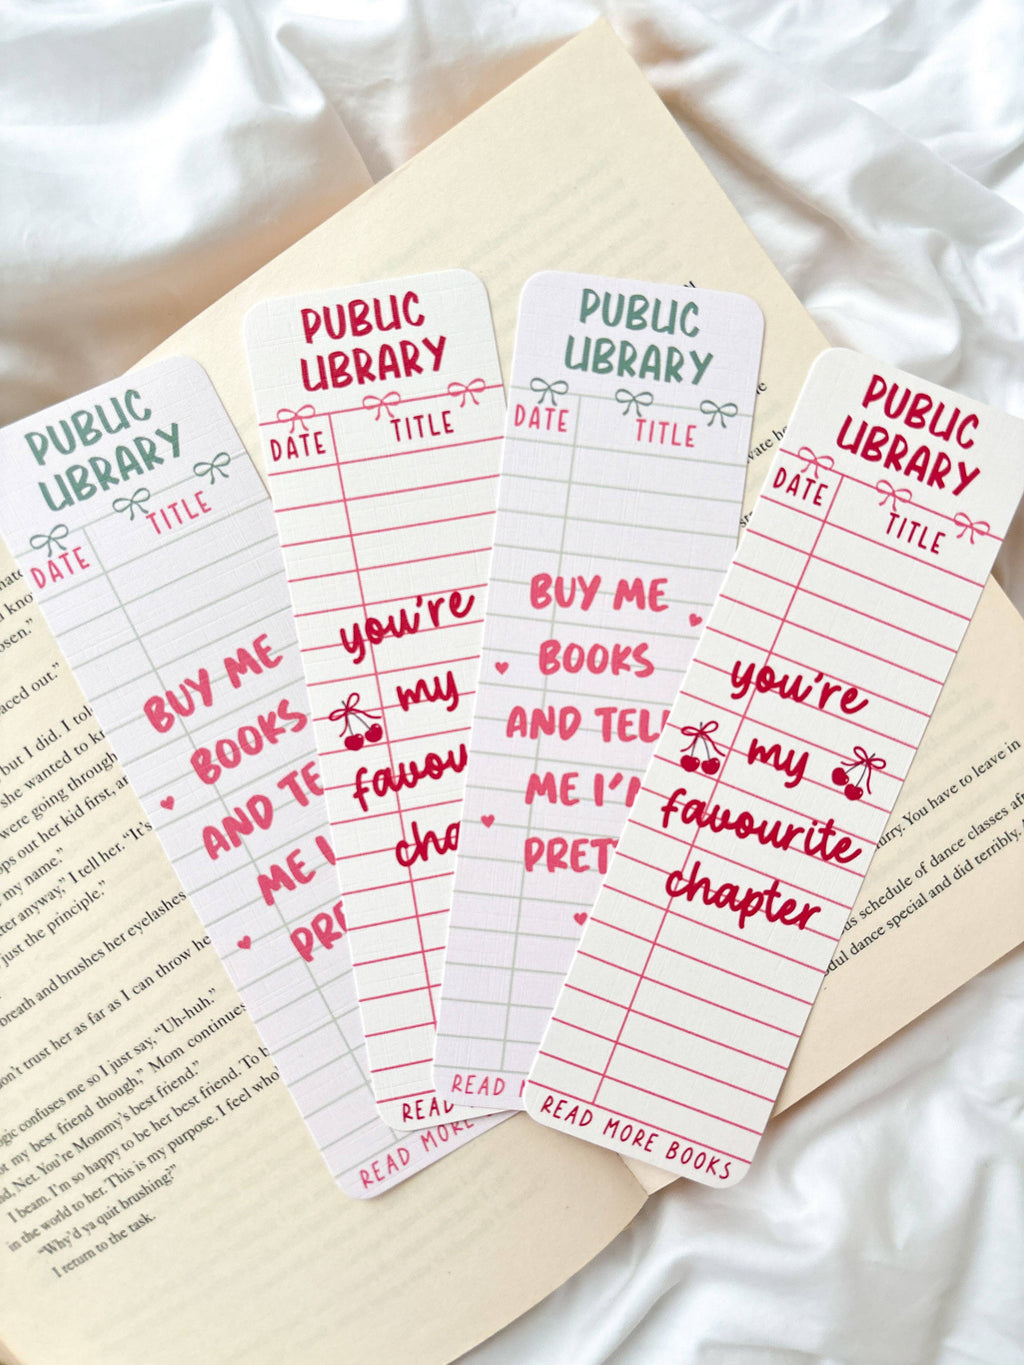 PUBLIC
LIBRARY
DATE
TITLE
BUY ME
BOOKS
AND TE
ME I
PRE
READ MORE
PUBLIC
LIBRARY
DATE
TITLE
you're
my
favou
cha
READ
PUBLIC
LIBRARY
DATE
TITLE
BUY ME
BOOKS
AND TELL
ME I'M
PRETT
READ M
PUBLIC
LIBRARY
DATE
TITLE
you're
my
favourite
chapter
READ MORE BOOKS
aced out."
but I did. I tol
she wanted to k
were going through
ops out her kid first, an
my name."
ter anyway," I tell her. "It's
just the principle."
breath and brushes her eyelashes
on't trust her as far as I can throw he
gic confuses me so I just say, "Uh-huh."
ot my best friend though," Mom continues
d, Net. You're Mommy's best friend."
I beam. I'm so happy to be her best friend. To b
in the world to her. This is my purpose. I feel who
"Why'd ya quit brushing?"
I return to the task.
urry. You have to leave in
us schedule of dance classes aft
dul dance special and did terribly.